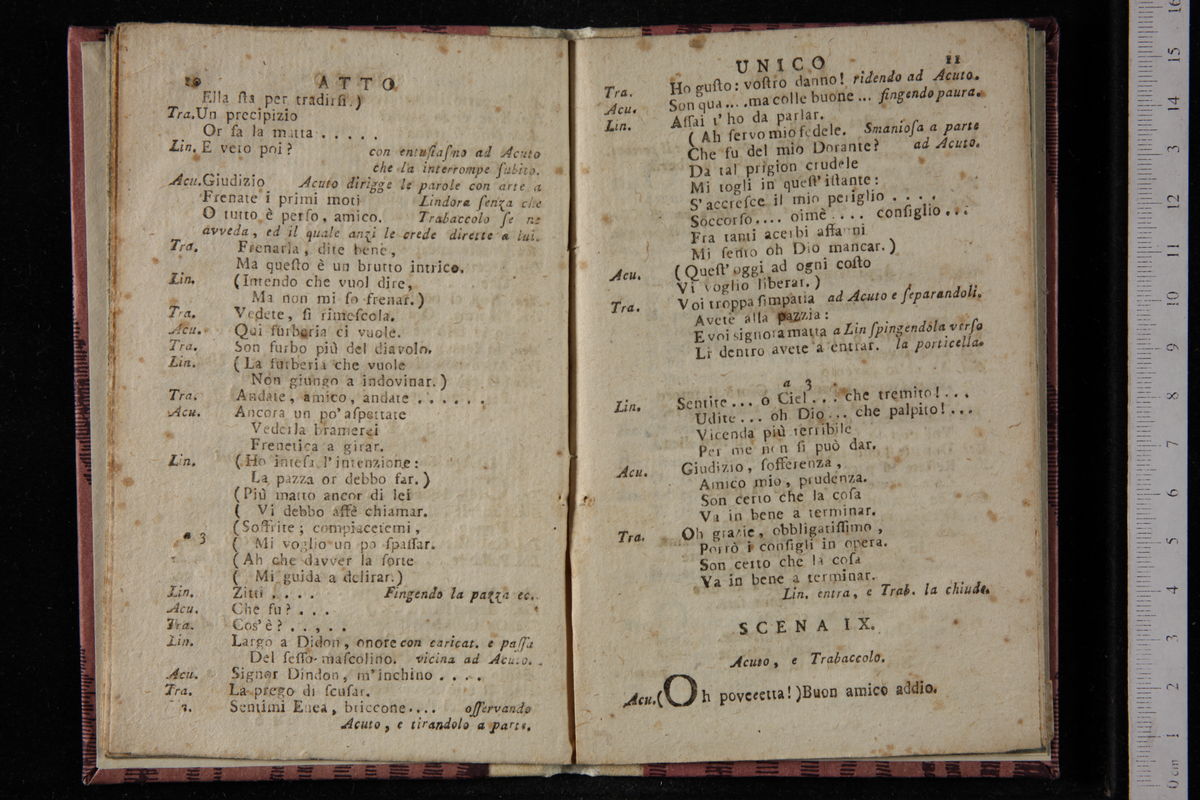 10 ATTO
Ella sta per tradirsi.)
Tra. Un precipizio
Or fa la matta . . . . .
Lin. E vero poi? con entusiasmo ad Acuto
che la interrompe subito.
Acu. Giudizio Acuto dirigge le parole con arte a
Frenate i primi moti Lindora senza che
O tutto è perso, amico. Trabaccolo se ne
avveda, ed il quale anzi le crede dirette a lui.
Tra. Frenarla, dite bene,
Ma questo è un brutto intrico.
Lin. (Intendo che vuol dire,
Ma non mi so frenar.)
Tra. Vedete, si rimescola.
Acu. Qui furberia ci vuole.
Tra. Son furbo più del diavolo.
Lin. (La furberia che vuole
Non giungo a indovinar.)
Tra. Andate, amico, andate . . . . . .
Acu. Ancora un po' aspettate
Vederla bramerei
Frenetica a girar.
Lin. (Ho intesa l'intenzione:
La pazza or debbo far.)
(Più matto ancor di lei
( Vi debbo affè chiamar.
(Soffrite; compiacetemi,
a 3 ( Mi voglio un po spassar.
(Ah che davver la sorte
( Mi guida a delirar.)
Lin. Zitti . . . . Fingendo la pazza ec.
Acu. Che fu? . . .
Tra. Cos'è? . . . . .
Lin. Largo a Didon, onore con caricat. e passa
Del sesso mascolino. vicina ad Acuto.
Acu. Signor Dindon, m'inchino . . . .
Tra. La prego di scusar.
Sentimi Enea, briccone.... osservando
Acuto, e tirandolo a parte.
UNICO 11
Tra. Ho gusto: vostro danno! ridendo ad Acuto.
Acu. Son qua ... .ma colle buone ... fingendo paura.
Lin. Assai t'ho da parlar.
(Ah servo mio fedele. Smaniosa a parte
Che fu del mio Dorante? ad Acuto.
Da tal prigion crudele
Mi togli in quest'istante:
S'accresce il mio periglio . . . .
Soccorso.... oimè .... consiglio...
Fra tanti acerbi affanni
Mi sento oh Dio mancar.)
Acu. (Quest'oggi ad ogni costo
Vi voglio liberar.)
Tra. Voi troppa simpatia ad Acuto e separandoli.
Avete alla pazzia:
E voi signora matta a Lin spingendola verso
Lì dentro avete a entrar. la porticella.
a 3
Lin. Sentite... o Ciel... che tremito!...
Udite... oh Dio... che palpito!...
Vicenda più terribile
Per me non si può dar.
Acu. Giudizio, sofferenza,
Amico mio, prudenza.
Son certo che la cosa
Va in bene a terminar.
Tra. Oh grazie, obbligatissimo,
Porrò i consigli in opera.
Son certo che la cosa
Va in bene a terminar.
Lin. entra, e Trab. la chiude.
SCENA IX.
Acuto, e Trabaccolo.
Acu. (Oh povereetta!)Buon amico addio.